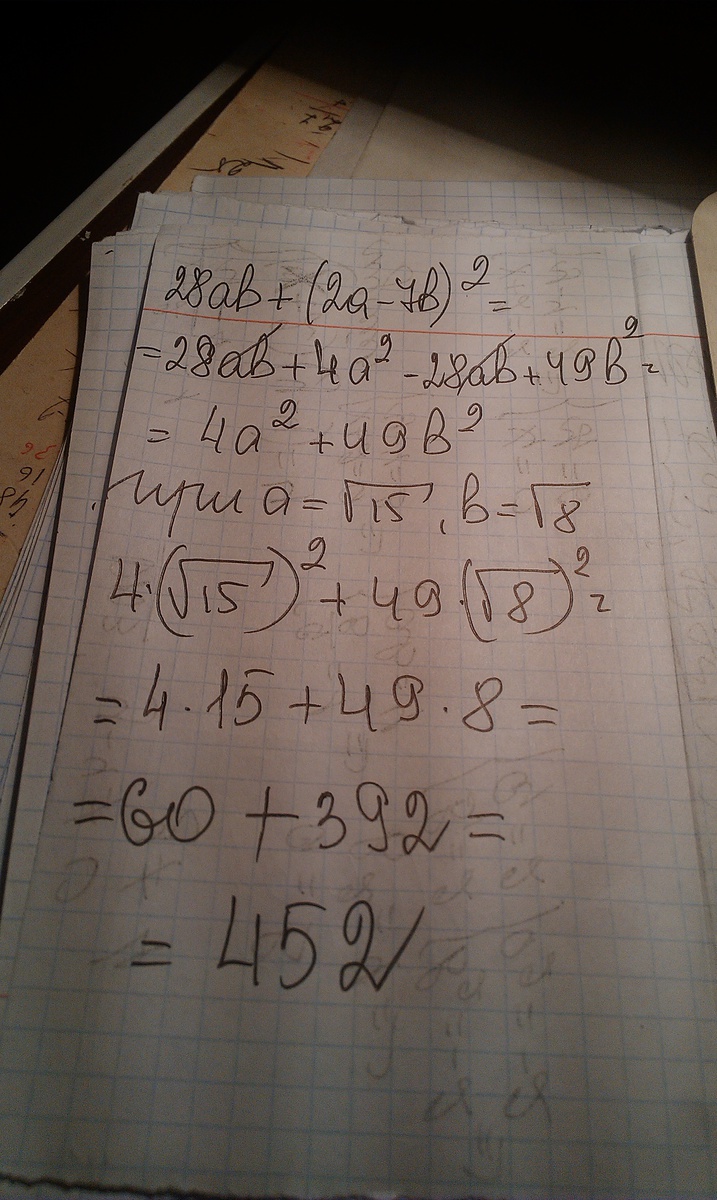 28ab+(2a-7b)²=
=28ab+4a²-28ab+49b²=
=4a²+49b²
при a=√15, b=√8
4·(√15)²+49·(√8)²=
=4·15+49·8=
=60+392=
=452